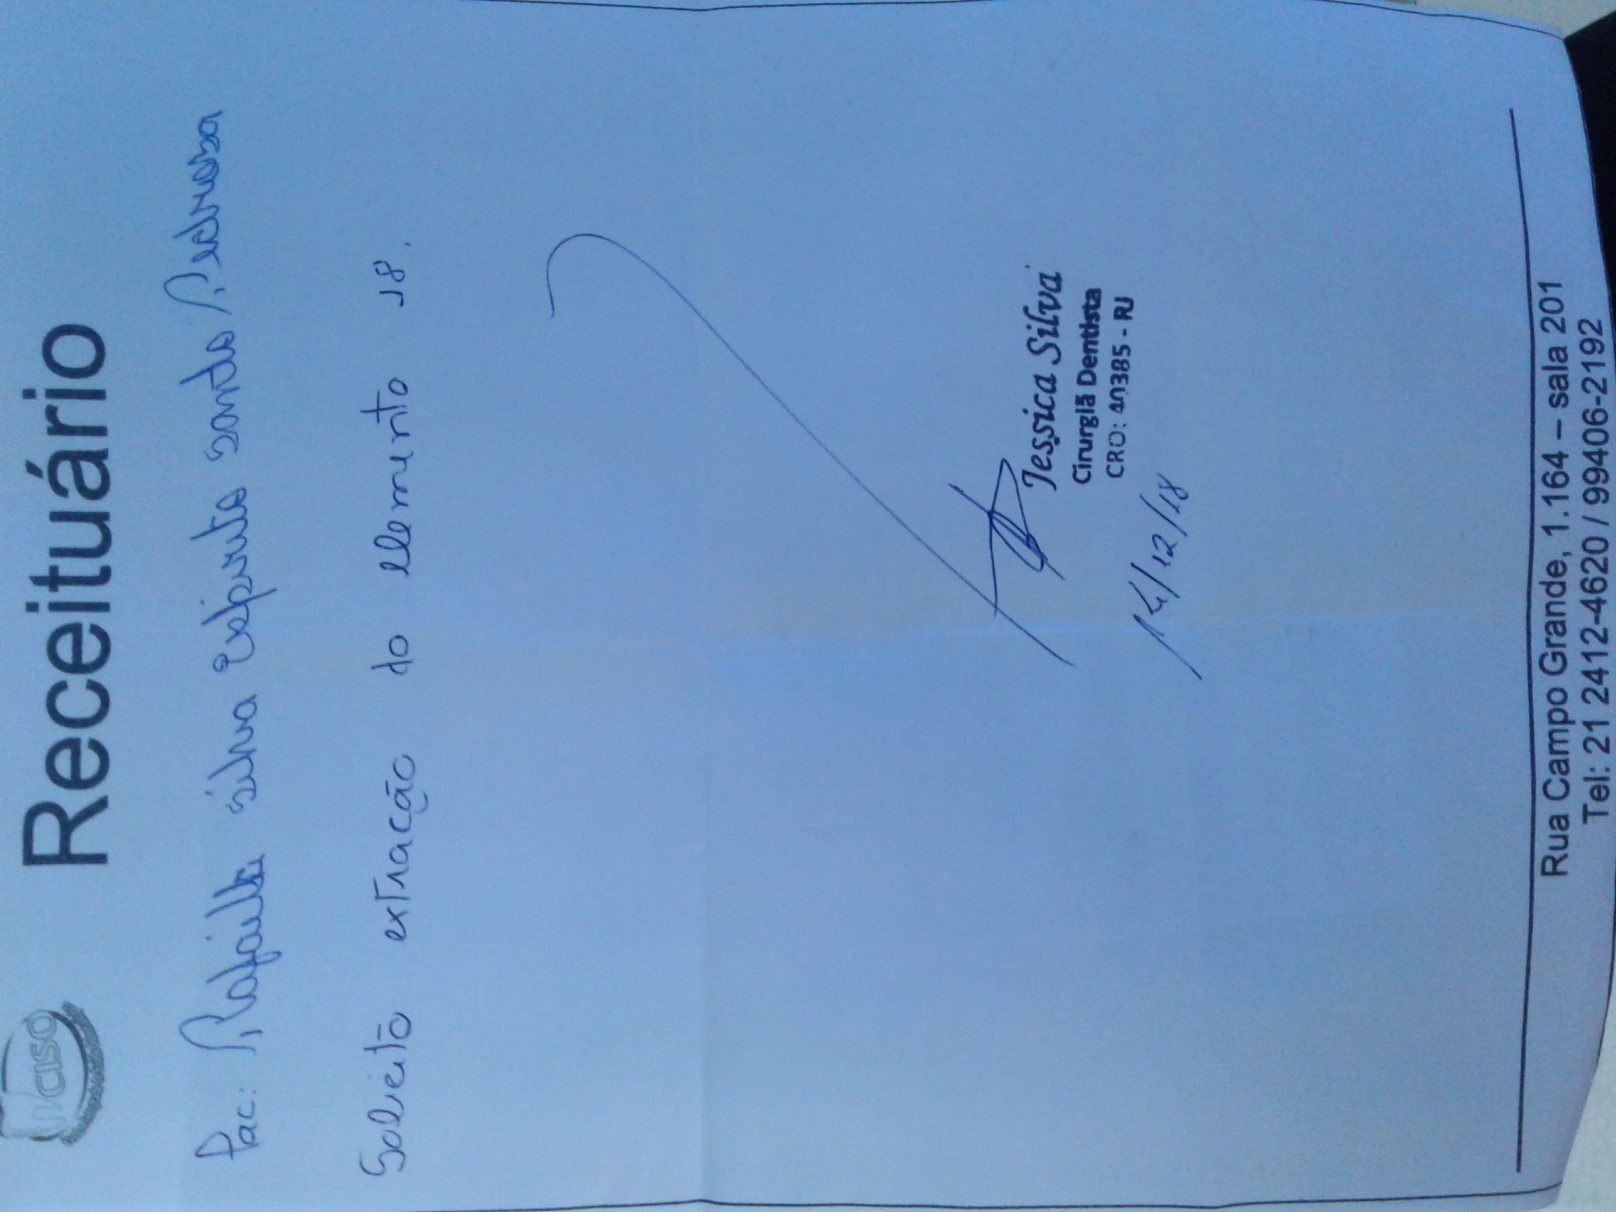 CISO
Receituário
Pac: Rafaella silva Espirito santo Pedrosa
Solicito extração do elemento 18.
Jessica Silva
Cirurgiã Dentista
CRO: 40385 - RJ
14/12/18
Rua Campo Grande, 1.164 – sala 201
Tel: 21 2412-4620 / 99406-2192